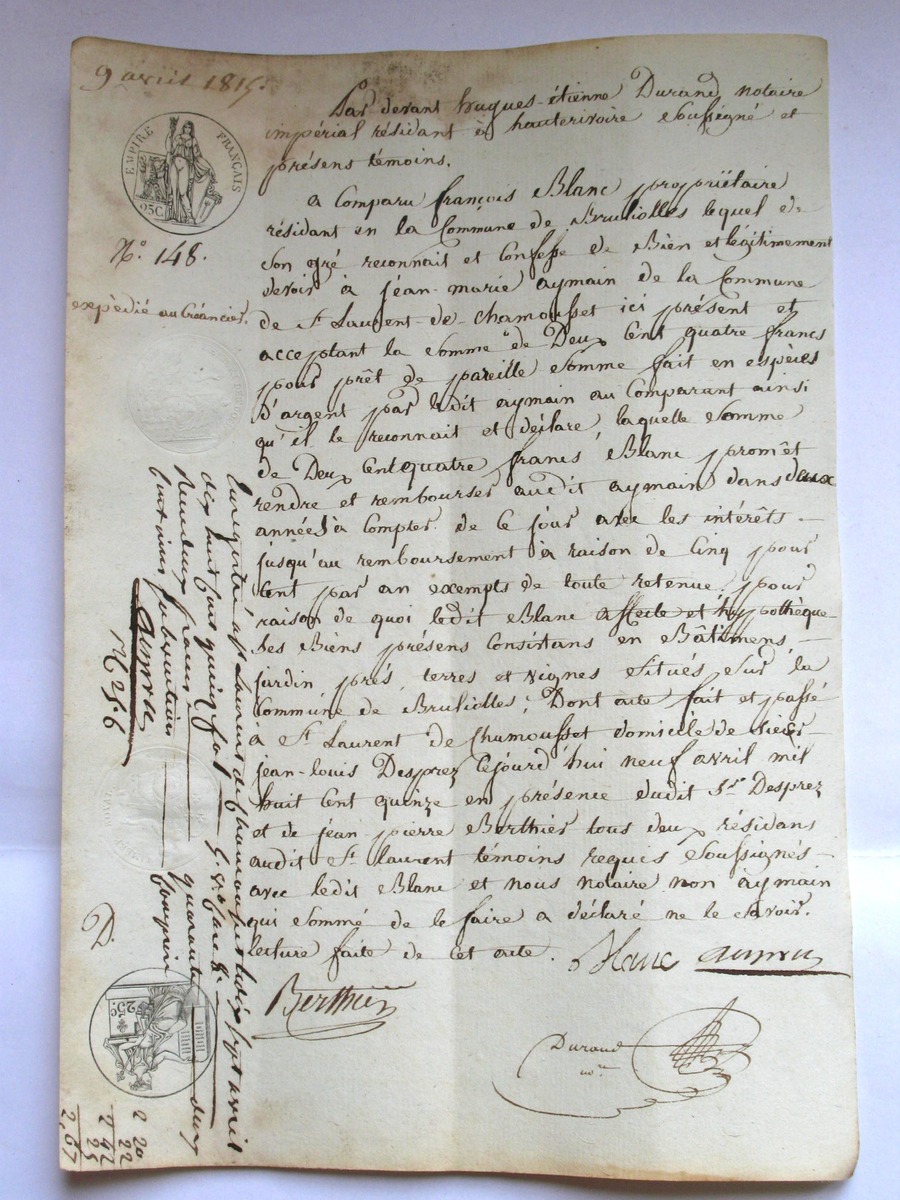 9 avril 1815.
EMPIRE FRANÇAIS
25C
N.º 148.
expédié au Créancier.
Par devant hugues-étienne Durand notaire
impérial résidant à hauterivoire Soussigné et
présens témoins.
a Comparu françois Blanc propriétaire
résidant en la Commune de Brulliolles lequel de
Son gré reconnait et Confesse de Bien et légitimement
devoir à jean-marie aymain de la Commune
de St. Laurent-de-chamousset ici présent et
acceptant la Somme de Deux Cent quatre francs
pour prêt de pareille Somme fait en espèces
d'argent par ledit aymain au Comparant ainsi
qu'il le reconnait et déclare, laquelle Somme
de Deux Cent quatre francs, Blanc promêt
rendre et rembourser audit aymain dans deux
années à Compter de Ce jour avec les intérêts
jusqu'au remboursement à raison de Cinq pour
Cent par an exempts de toute retenue, pour
raison de quoi ledit Blanc affecte et hypothèque
Ses Biens présens Consistans en Bâtimens,
jardin prés, terres et vignes Situés Sur la
Commune de Brulliolles; Dont acte fait et passé
à St. Laurent de Chamousset domicile de Sieur
jean-louis Desprez Cejourd'hui neuf avril mil
huit Cent quinze en présence dudit Sr. Desprez
et de jean pierre Berthier tous deux résidans
audit St. laurent témoins requis Soussignés
avec ledit Blanc et nous notaire non aymain
qui Sommé de le faire a déclaré ne le Savoir.
lecture faite de Cet acte.
Blanc
Berthier
Durand
nore.
Enregistré à St Laurent de chamousset le dix sept avril
dix huit cent quinze fol
Reçu deux francs quarante deux
centimes subvention comprise
D.
25C
2 20
22
2 42
25
2,67